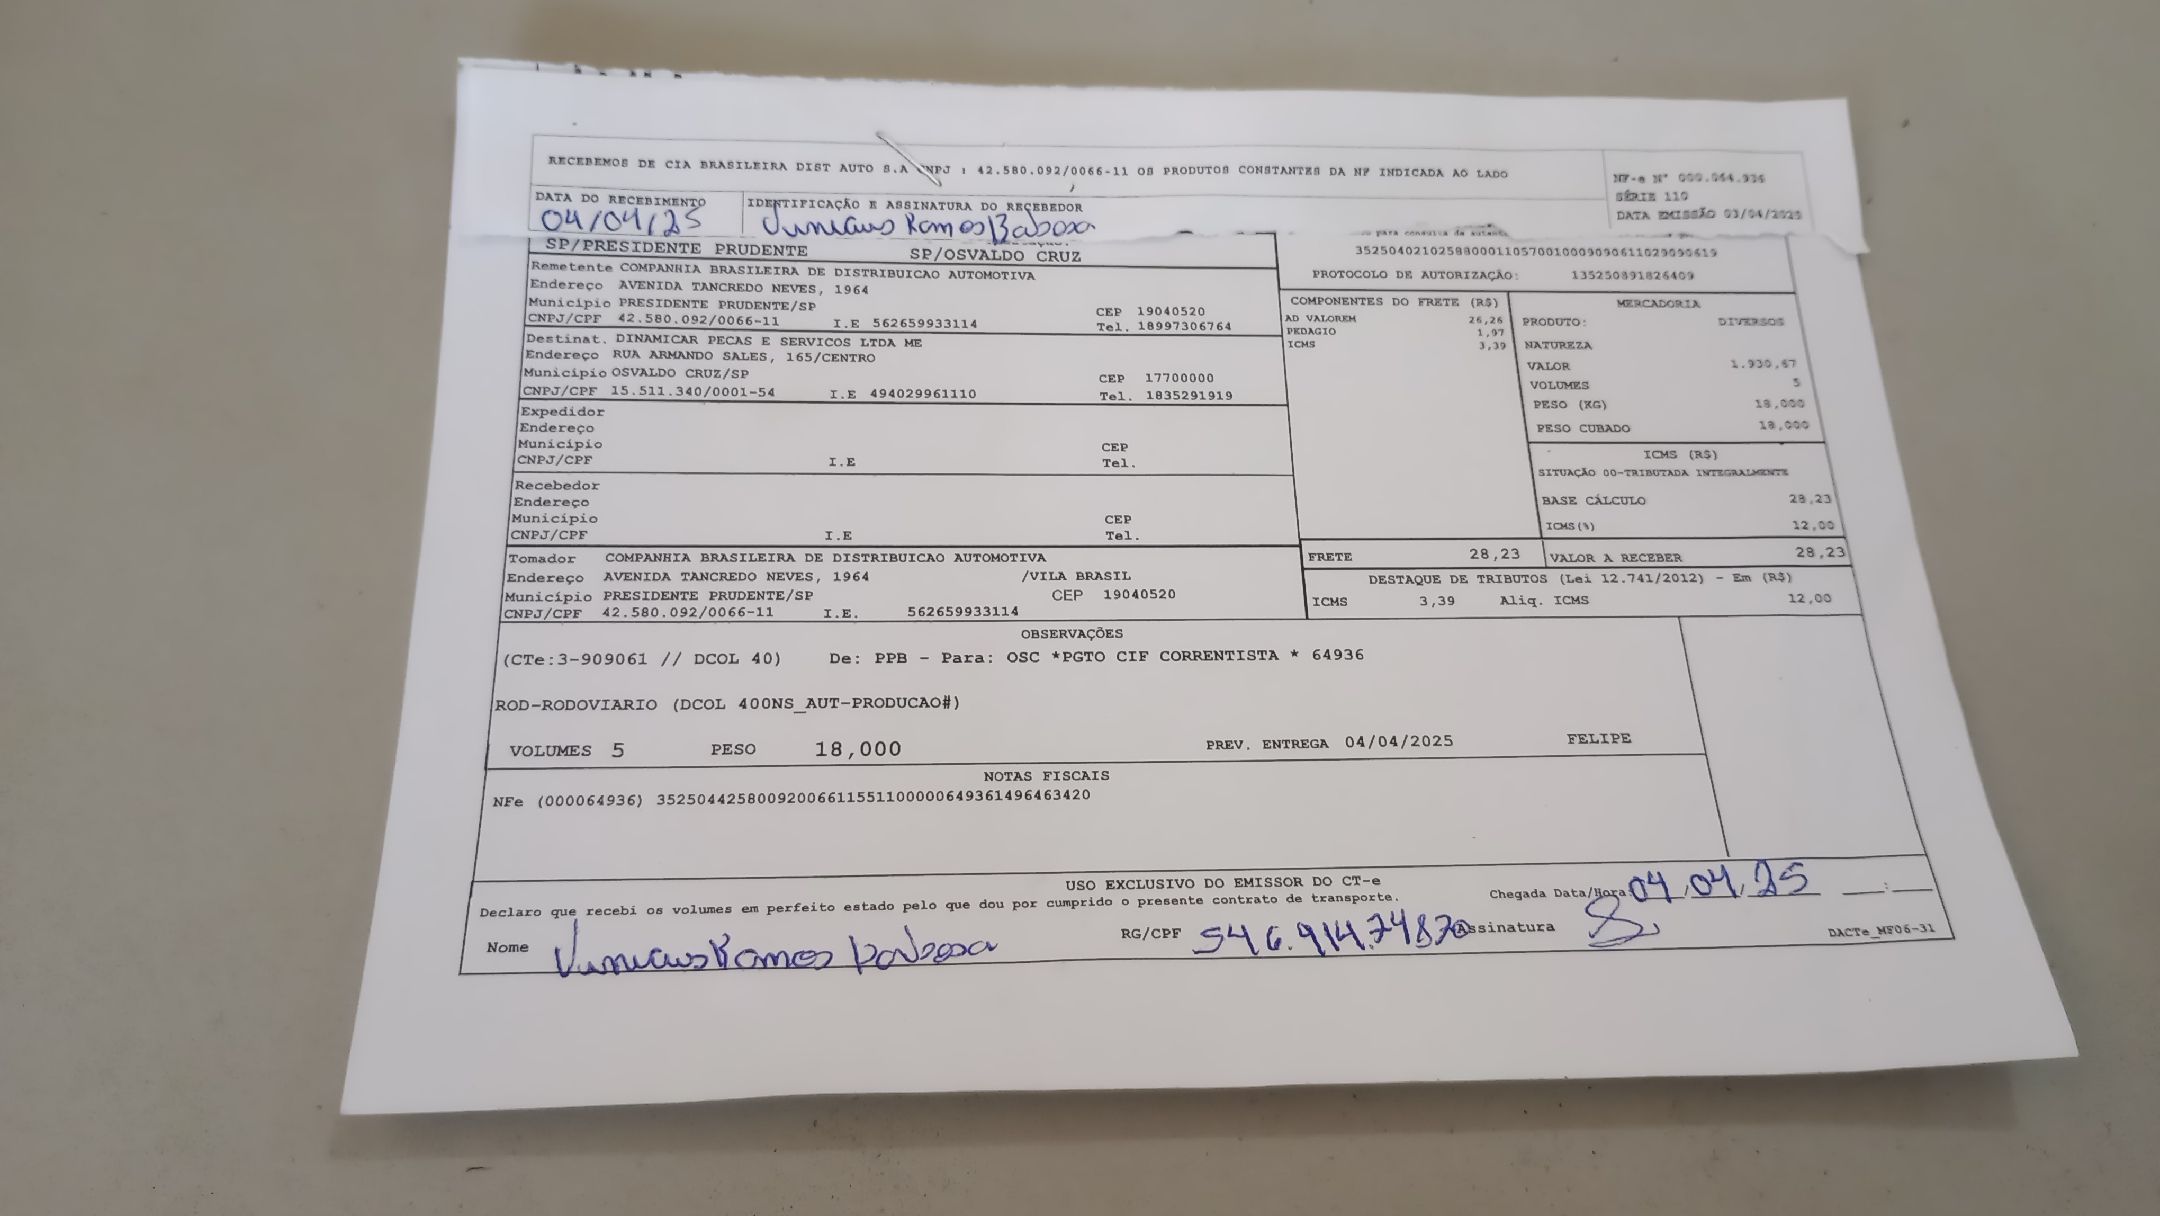 RECEBEMOS DE CIA BRASILEIRA DIST AUTO S.A CNPJ : 42.580.092/0066-11 OS PRODUTOS CONSTANTES DA NF INDICADA AO LADO
NF-e Nº 000.064.936
SÉRIE 110
DATA EMISSÃO 03/04/2025
DATA DO RECEBIMENTO
04/04/25
IDENTIFICAÇÃO E ASSINATURA DO RECEBEDOR
Vinicius Ramos Barbosa
SP/PRESIDENTE PRUDENTE SP/OSVALDO CRUZ
para consulta de
35250402102588000110570010009090611029090619
PROTOCOLO DE AUTORIZAÇÃO: 135250891826409
Remetente COMPANHIA BRASILEIRA DE DISTRIBUICAO AUTOMOTIVA
Endereço AVENIDA TANCREDO NEVES, 1964
Município PRESIDENTE PRUDENTE/SP CEP 19040520
CNPJ/CPF 42.580.092/0066-11 I.E 562659933114 Tel. 18997306764
Destinat. DINAMICAR PECAS E SERVICOS LTDA ME
Endereço RUA ARMANDO SALES, 165/CENTRO
Município OSVALDO CRUZ/SP CEP 17700000
CNPJ/CPF 15.511.340/0001-54 I.E 494029961110 Tel. 1835291919
Expedidor
Endereço
Município CEP
CNPJ/CPF I.E Tel.
Recebedor
Endereço
Município CEP
CNPJ/CPF I.E Tel.
Tomador COMPANHIA BRASILEIRA DE DISTRIBUICAO AUTOMOTIVA
Endereço AVENIDA TANCREDO NEVES, 1964 /VILA BRASIL
Município PRESIDENTE PRUDENTE/SP CEP 19040520
CNPJ/CPF 42.580.092/0066-11 I.E. 562659933114
COMPONENTES DO FRETE (R$)
AD VALOREM 26,26
PEDAGIO 1,97
ICMS 3,39
MERCADORIA
PRODUTO: DIVERSOS
NATUREZA
VALOR 1.930,67
VOLUMES 5
PESO (KG) 18,000
PESO CUBADO 18,000
ICMS (R$)
SITUAÇÃO 00-TRIBUTADA INTEGRALMENTE
BASE CÁLCULO 28,23
ICMS(%) 12,00
FRETE 28,23 VALOR A RECEBER 28,23
DESTAQUE DE TRIBUTOS (Lei 12.741/2012) - Em (R$)
ICMS 3,39 Aliq. ICMS 12,00
OBSERVAÇÕES
(CTe:3-909061 // DCOL 40) De: PPB - Para: OSC *PGTO CIF CORRENTISTA * 64936
ROD-RODOVIARIO (DCOL 400NS_AUT-PRODUCAO#)
VOLUMES 5 PESO 18,000 PREV. ENTREGA 04/04/2025 FELIPE
NOTAS FISCAIS
NFe (000064936) 35250442580092006611551100000649361496463420
USO EXCLUSIVO DO EMISSOR DO CT-e
Declaro que recebi os volumes em perfeito estado pelo que dou por cumprido o presente contrato de transporte.
Chegada Data/Hora 04/04/25 __:__
Nome Vinicius Ramos Barbosa RG/CPF 546.914.74870 Assinatura
DACTe_MF06-31